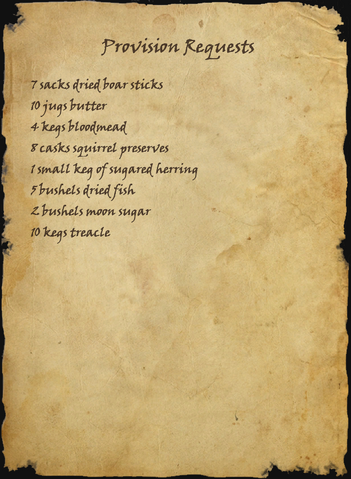 Provision Requests
7 sacks dried boar sticks
10 jugs butter
4 kegs bloodmead
8 casks squirrel preserves
1 small keg of sugared herring
5 bushels dried fish
2 bushels moon sugar
10 kegs treacle